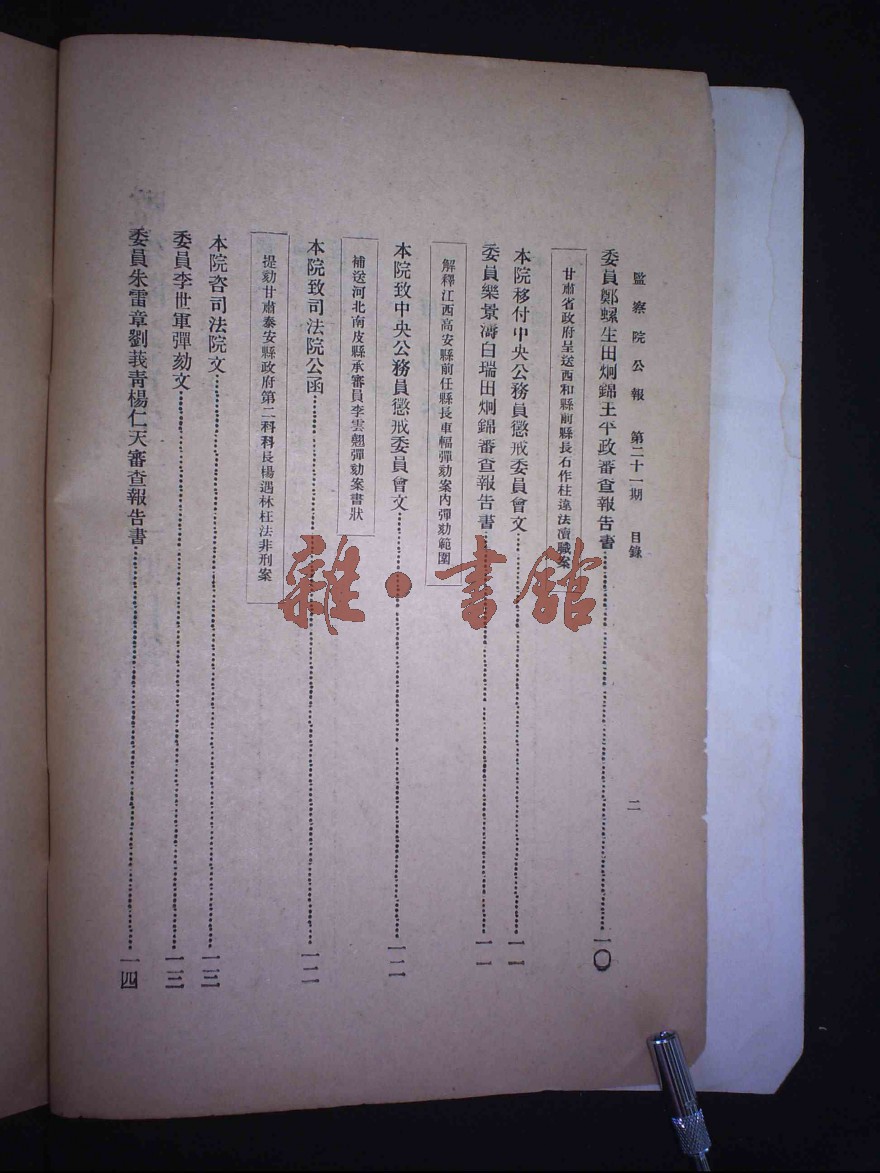 監察院公報 第二十一期 目錄 二
委員鄭螺生田炯錦王平政審查報告書 一〇
甘肅省政府呈送西和縣前縣長石作柱違法瀆職案
本院移付中央公務員懲戒委員會文 一一
委員樂景濤白瑞田炯錦審查報告書 一一
解釋江西高安縣前任縣長車輻彈劾案內彈劾範圍
本院致中央公務員懲戒委員會文 一二
補送河北南皮縣承審員李雲翹彈劾案書狀
本院致司法院公函 一二
提劾甘肅泰安縣政府第二科科長楊遇林枉法非刑案
本院咨司法院文 一三
委員李世軍彈劾文 一三
委員朱雷章劉莪青楊仁天審查報告書 一四
雜·書館